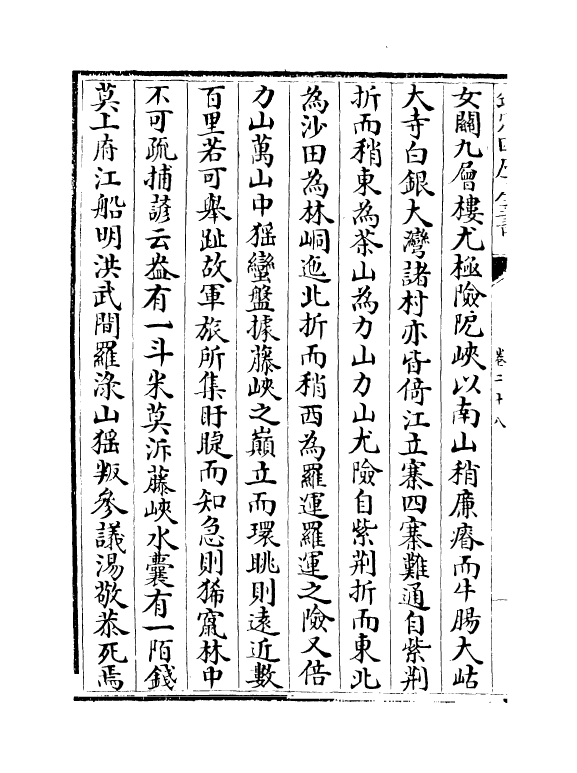 女闗九層樓尤極險阨峽以南山稍廉瘠而牛腸大岵
大寺白銀大灣諸村亦皆倚江立寨四寨難通自紫荆
折而稍東為茶山為力山力山尤險自紫荆折而東北
為沙田為林峒迤北折而稍西為羅運羅運之險又倍
力山萬山中猺蠻盤據藤峽之巔立而環眺則遠近數
百里若可舉趾故軍旅所集盱睫而知急則狶竄林中
不可疏捕諺云盎有一斗米莫泝藤峽水囊有一陌錢
莫上府江船明洪武間羅淥山猺叛參議湯敬恭死焉
卷二十八